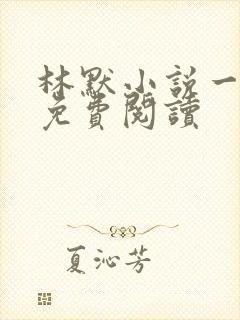 林默小説一
免費閱讀
夏沁芳